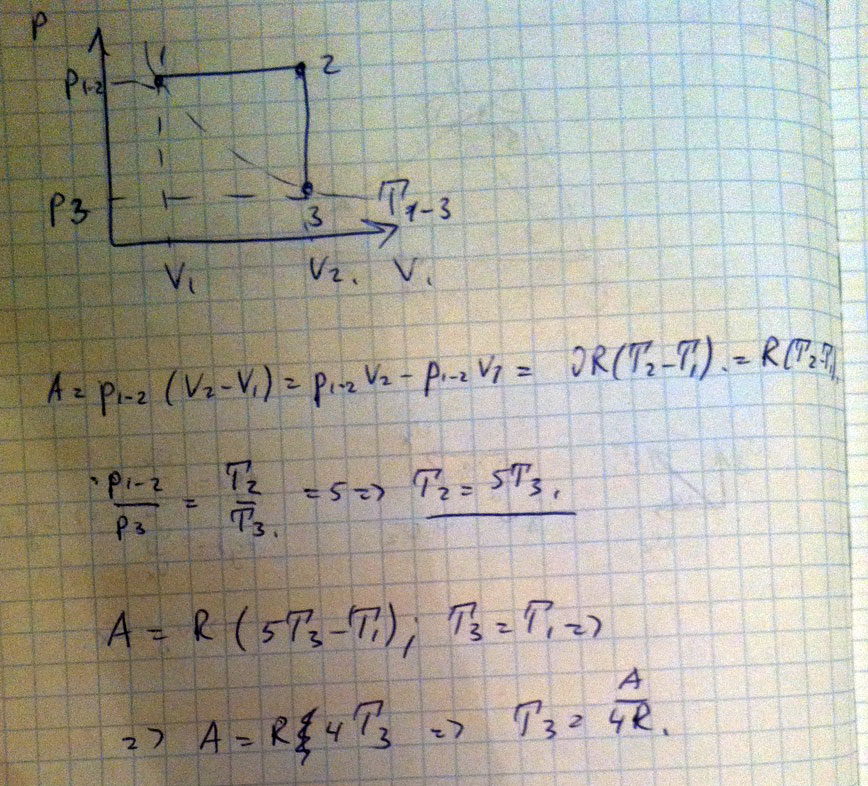 P
P₁₋₂ 1 2
P3 3 T₁₋₃
V₁ V₂. V.
A = p₁₋₂ (V₂ - V₁) = p₁₋₂ V₂ - p₁₋₂ V₁ = νR(T₂ - T₁). = R(T₂-T₁).
p₁₋₂/p₃ = T₂/T₃. = 5 => T₂ = 5T₃.
A = R (5T₃ - T₁); T₃ = T₁ =>
=> A = R 4 T₃ => T₃ = A/4R.